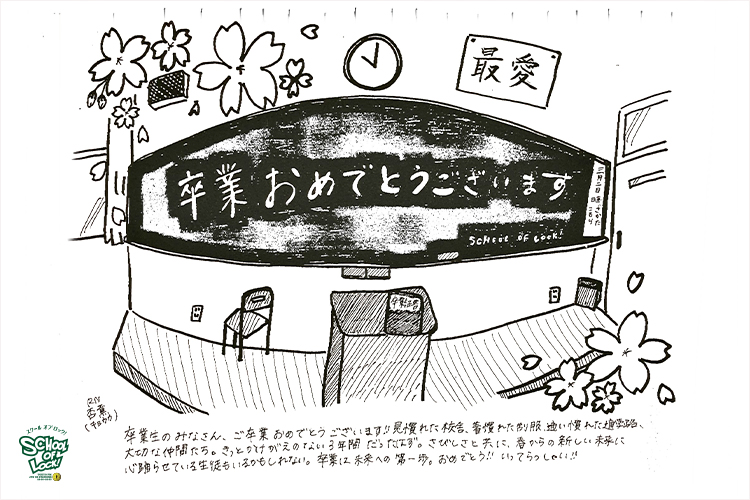 最愛
卒業おめでとうございます
三月二日
SCHOOL OF LOCK!
卒業証書
RN
杏薫
(キョウカ)
スクール オブ ロック!
SCHOOL
OF
LOCK!
卒業生のみなさん、ご卒業おめでとうございます!!見慣れた校舎、着慣れた制服、通い慣れた通学路、
大切な仲間たち。きっとかけがえのない3年間だったはず。さびしさと共に、春からの新しい未来に
心躍らせている生徒もいるかもしれない。卒業は未来への第一歩。おめでとう!!いってらっしゃい!!